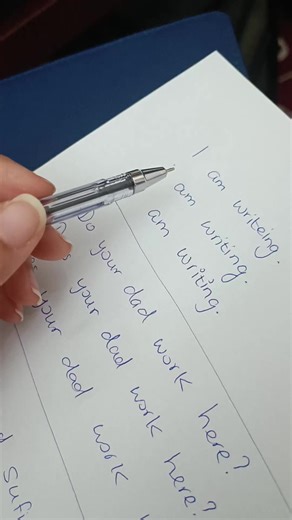 I am writeing.
am writing.
am writing.
Do your dad work here?
your dad work here?
your dad work
Sufi